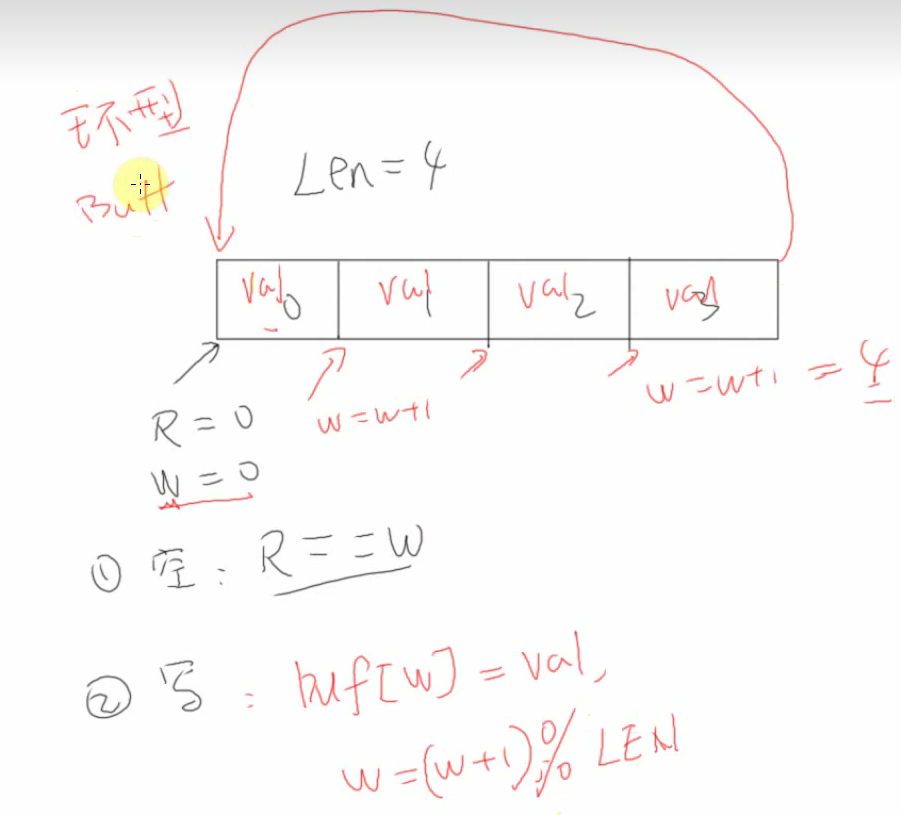 环型
Buff
Len=4
val0 val1 val2 val3
R=0
W=0
w=w+1
w=w+1 = 4
① 空: R==W
② 写: buf[w]=val,
w=(w+1)% LEN